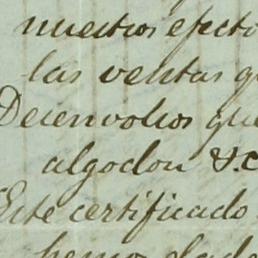 nuestros efecto
las ventas q
Desenvolvos que
algodon &.c
Este certificado
hemos dado